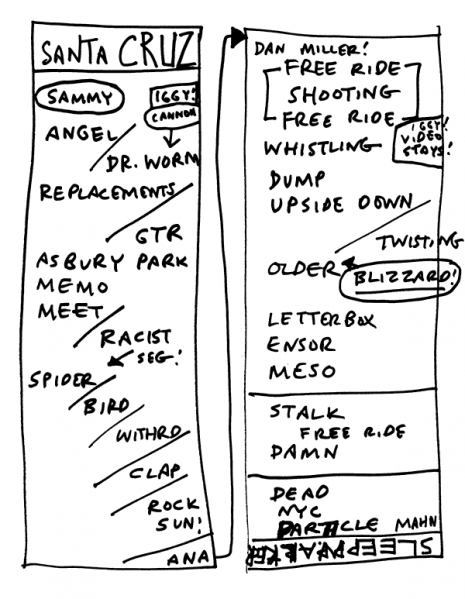 SANTA CRUZ
SAMMY
IGGY!
CANNON
ANGEL
DR. WORM
REPLACEMENTS
GTR
ASBURY PARK
MEMO
MEET
RACIST
SEG!
SPIDER
BIRD
WITHRD
CLAP
ROCK
SUN!
ANA
DAN MILLER!
FREE RIDE
SHOOTING
FREE RIDE
WHISTLING
IGGY!
VIDEO
STAYS!
DUMP
UPSIDE DOWN
TWISTING
OLDER
BLIZZARD!
LETTERBOX
ENSOR
MESO
STALK
FREE RIDE
DAMN
DEAD
NYC
PARTICLE MAHN
SLEEPWALKER